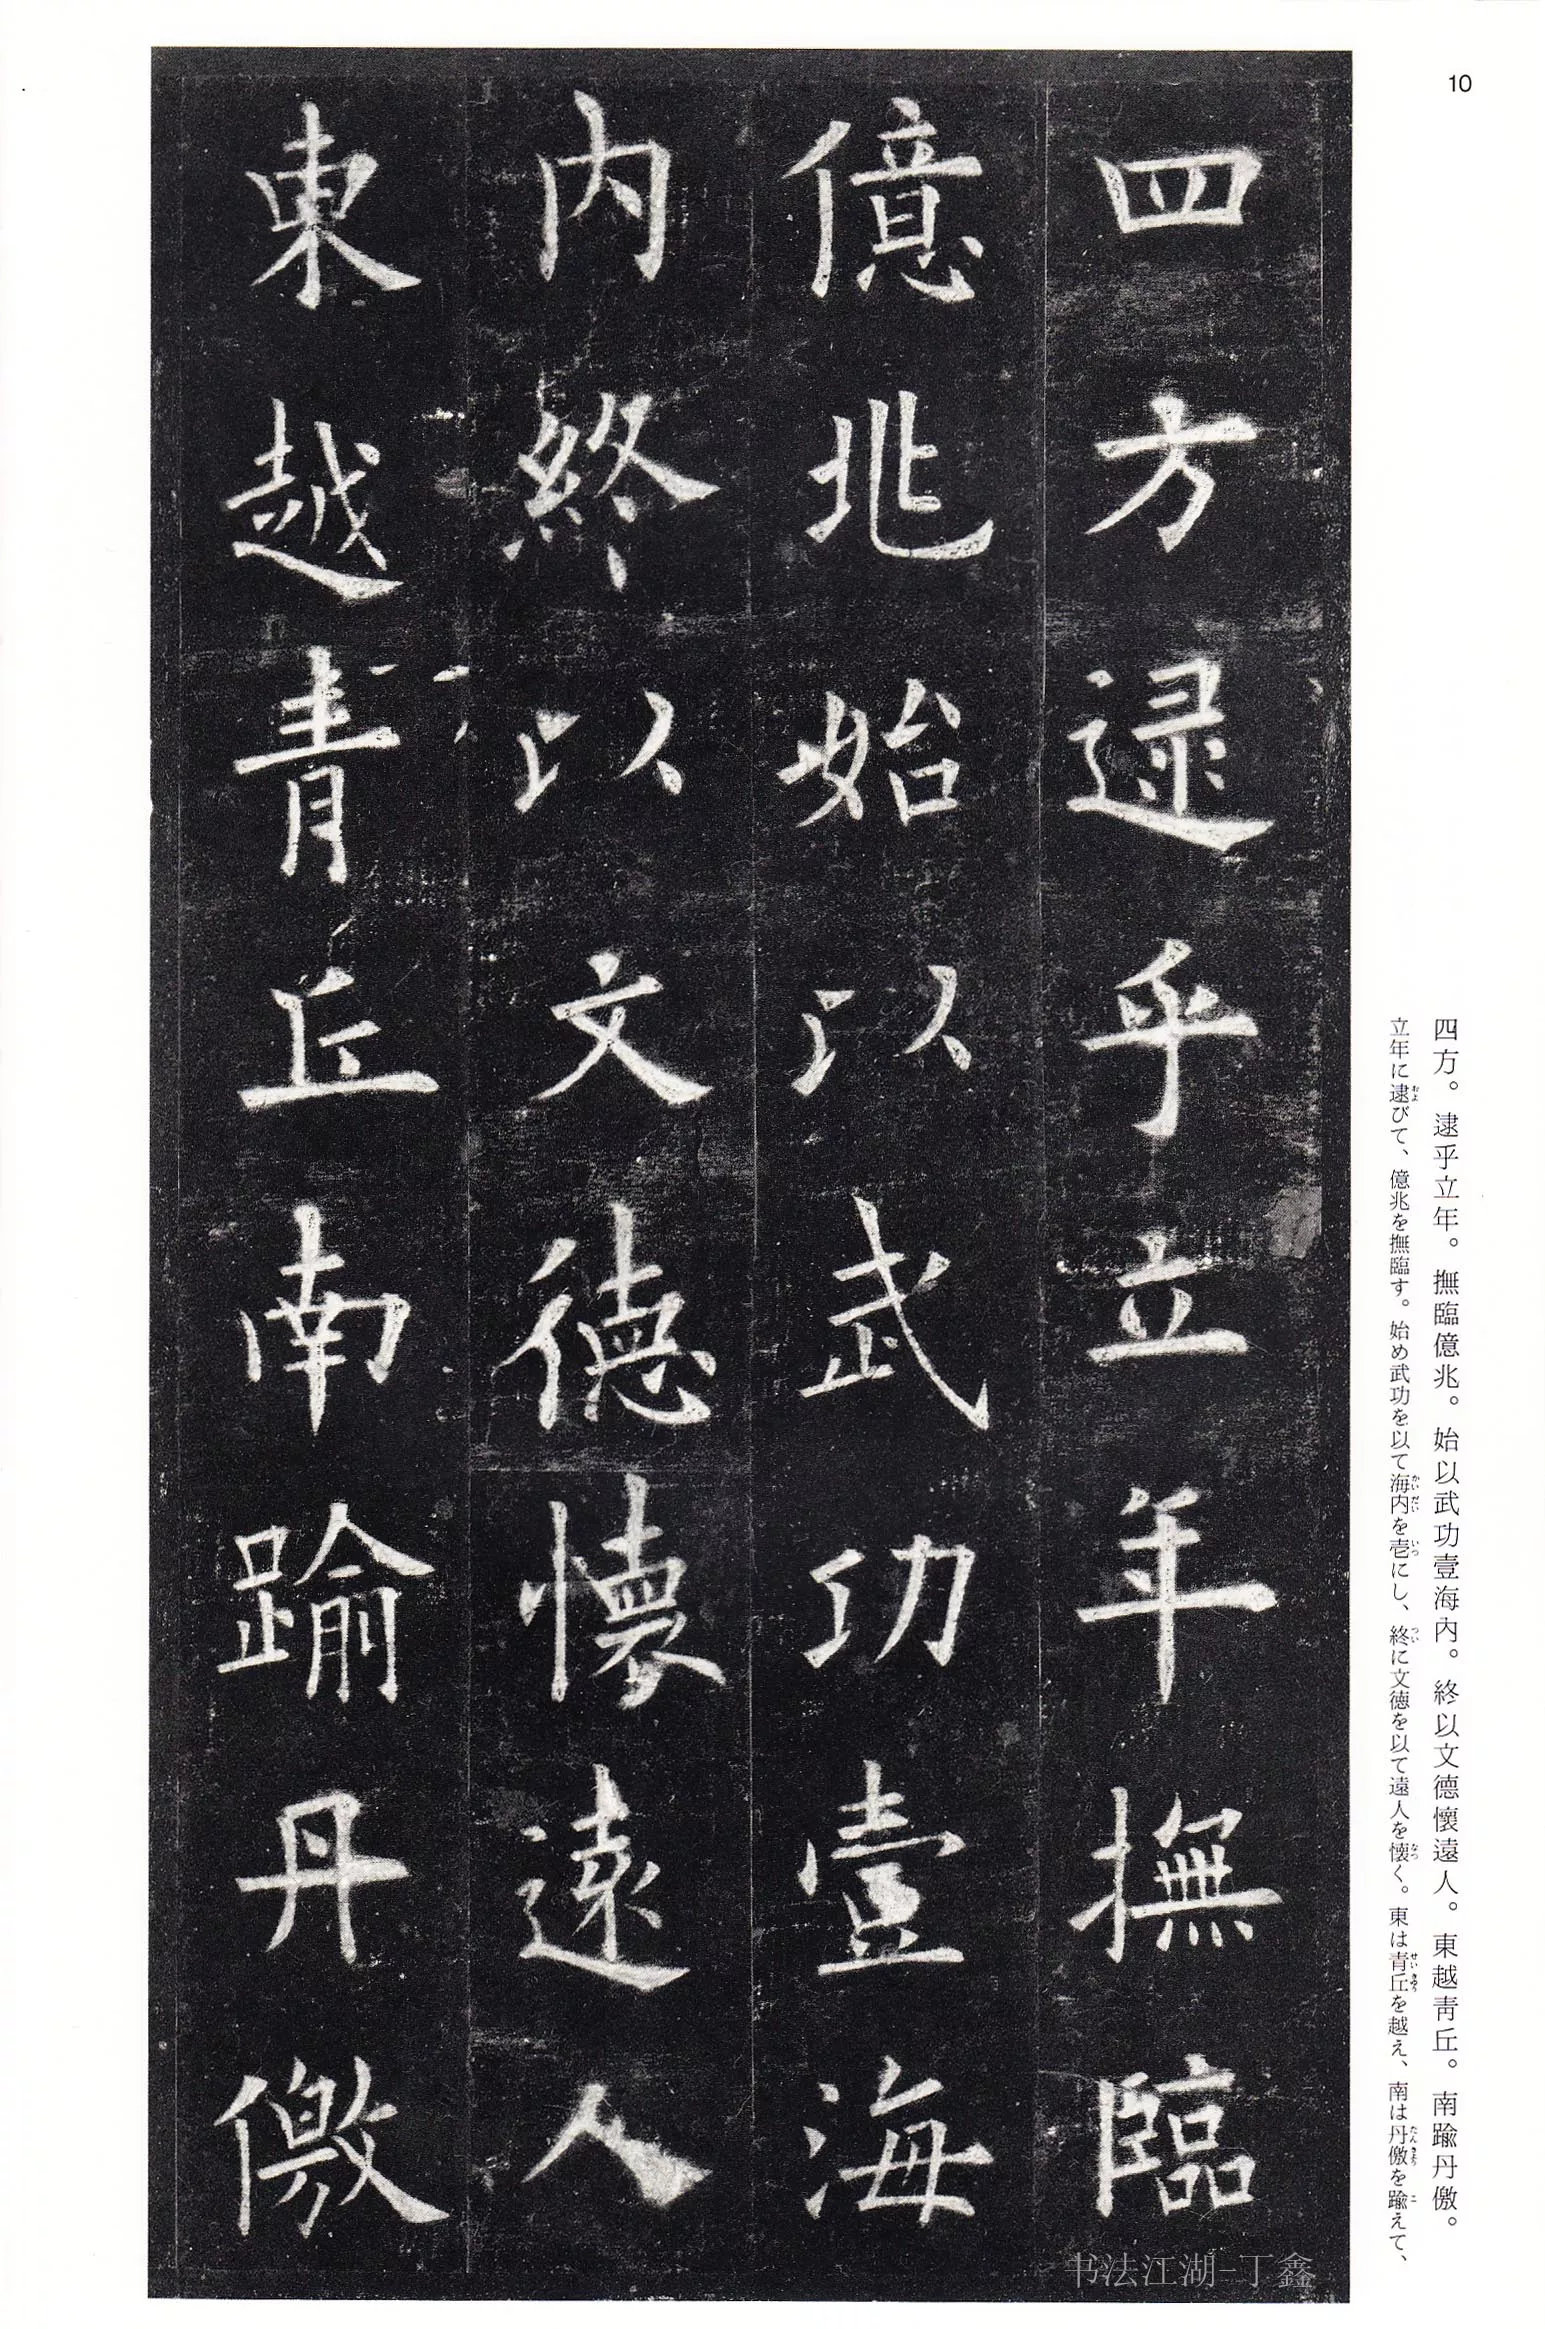 10
四方逮乎立年撫臨
億兆始以武功壹海
内終以文德懷遠人
東越青丘南踰丹儌
四方。逮乎立年。撫臨億兆。始以武功壹海内。終以文德懷遠人。東越靑丘。南踰丹儌。
立年に逮びて、億兆を撫臨す。始め武功を以て海内を壱にし、終に文徳を以て遠人を懐く。東は青丘を越え、南は丹儌を踰えて、
およ
かいだい
いつ
つい
なつ
せいきゅう
たんきょう
こ
书法江湖-丁鑫